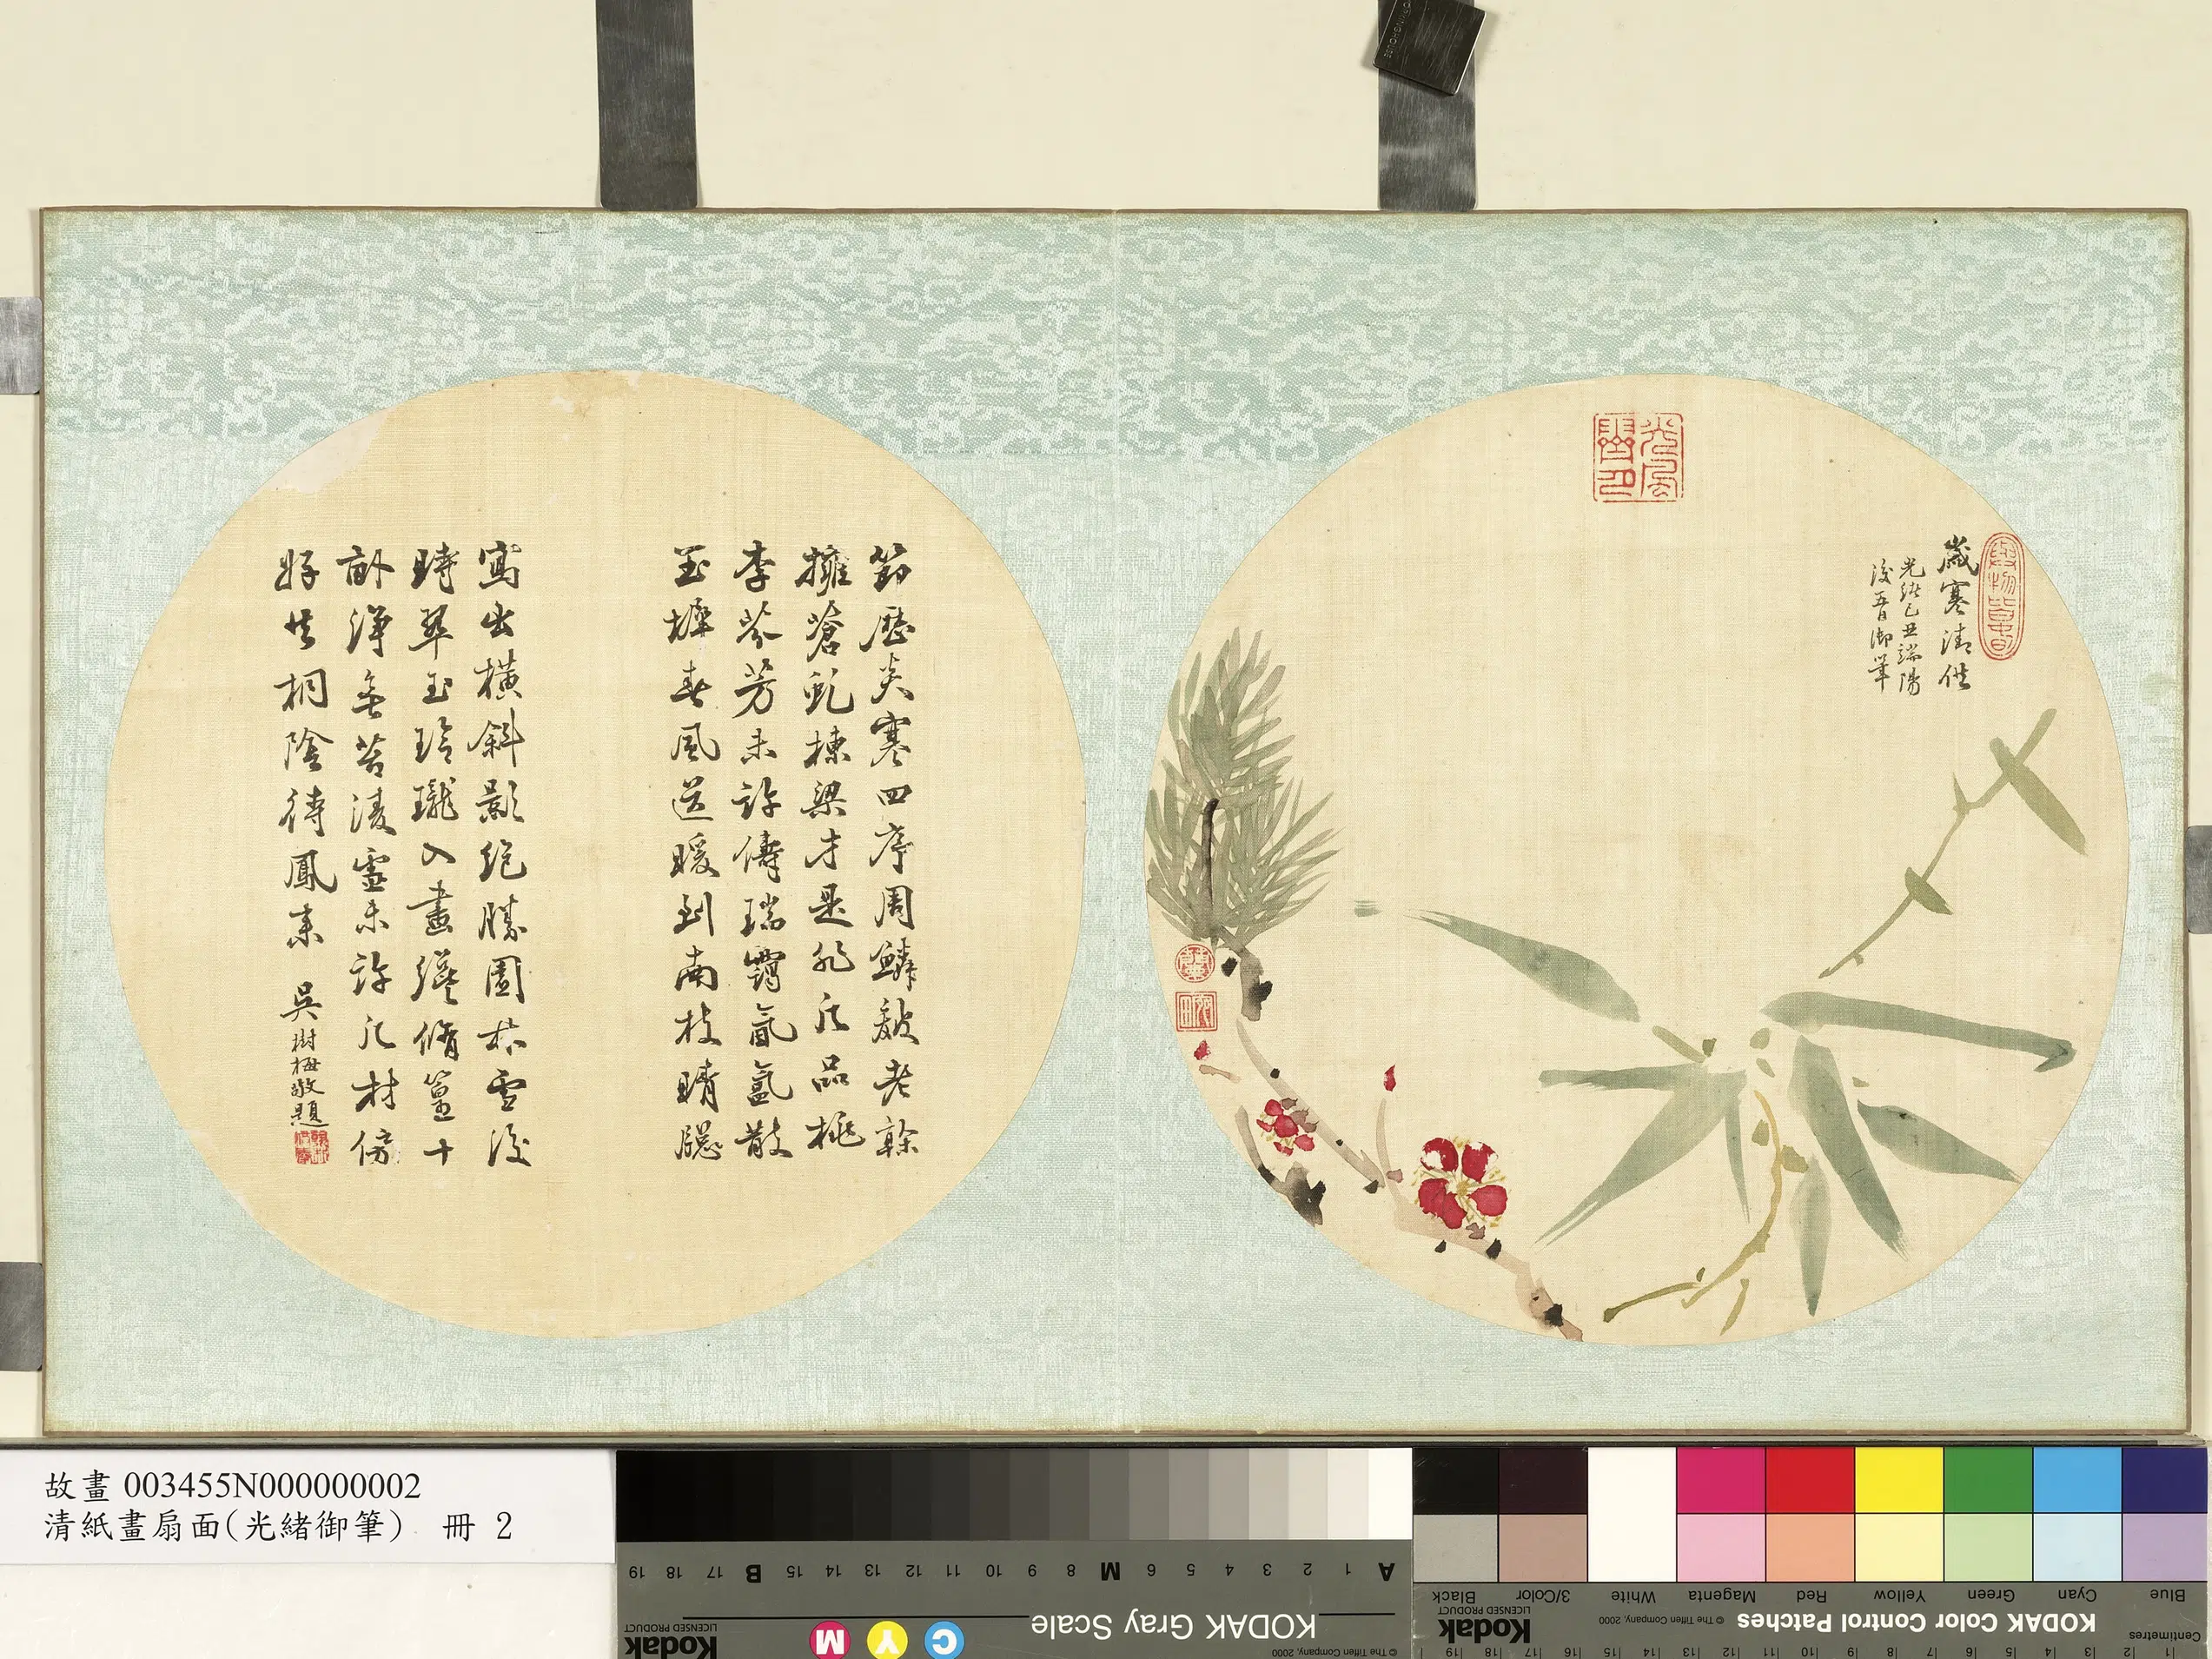 歲寒清供
光緒己丑端陽
後五日御筆
節歷炎寒四序周鱗皴老榦
擁蒼虬棟梁才是非凡品桃
李芬芳未許儔瑞靄氤氳散
玉墀春風送暖到南枝晴牕
寫出橫斜影絕勝園林雪後
時翠玉玲瓏入畫纔脩篁十
畝淨無苔淩雲未許凡材傍
好共桐陰待鳳來 吳樹梅敬題
故畫 003455N000000002
清紙畫扇面(光緒御筆) 冊 2
KODAK Gray Scale
Kodak
LICENSED PRODUCT
C Y M
© The Tiffen Company, 2000
A 1 2 3 4 5 6 M 8 9 10 11 12 13 14 15 B 17 18 19
KODAK Color Control Patches
© The Tiffen Company, 2000
Kodak
LICENSED PRODUCT
Blue Cyan Green Yellow Red Magenta White 3/Color Black
Centimetres